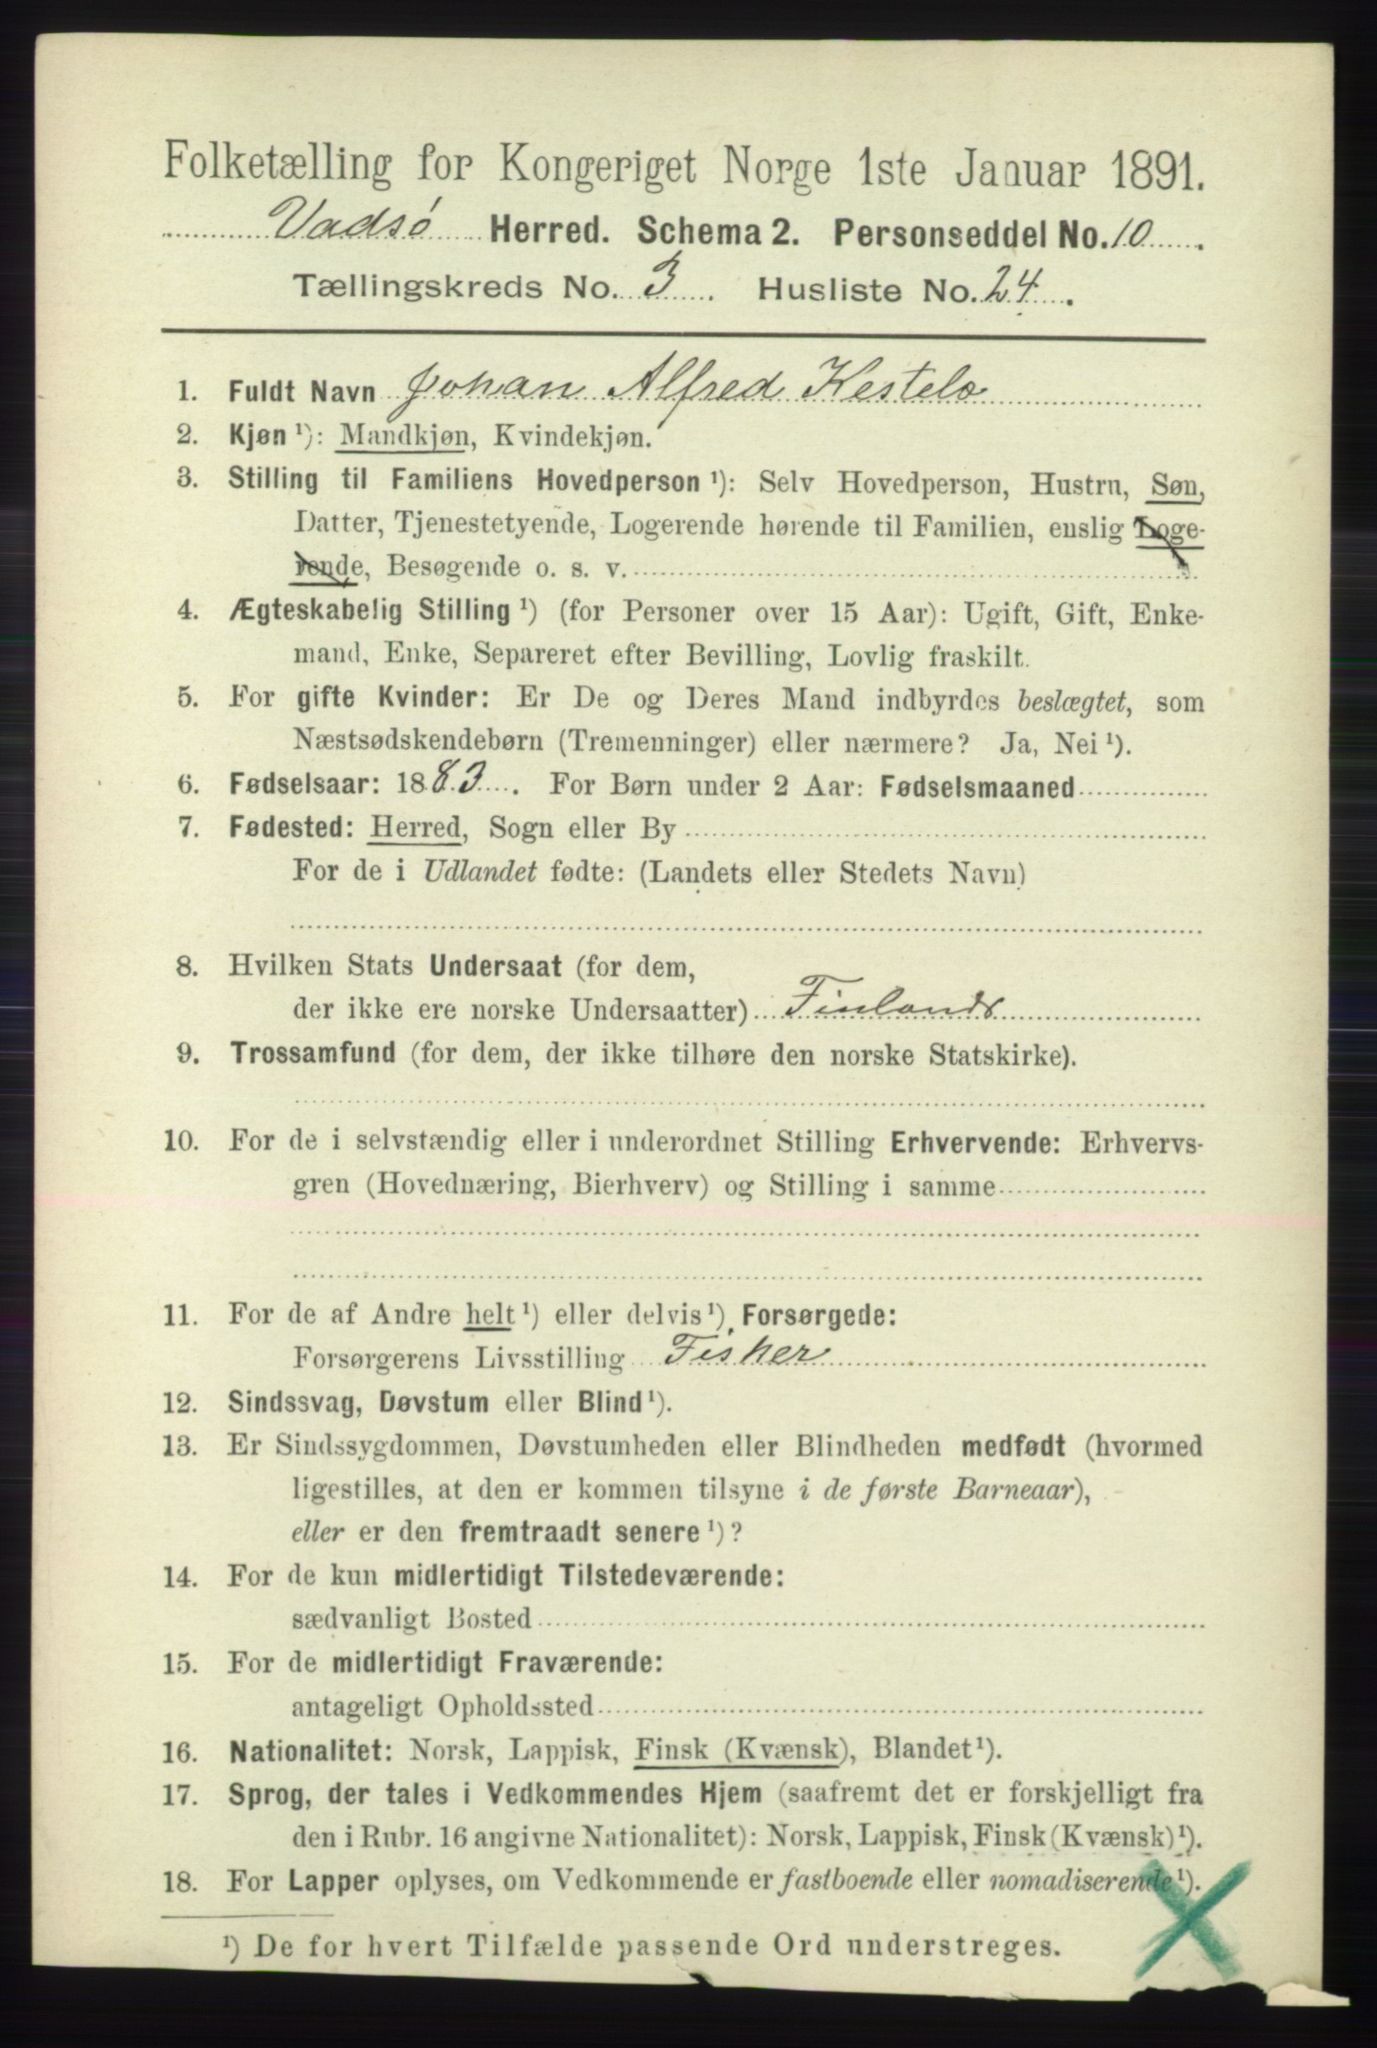 Folketælling for Kongeriget Norge 1ste Januar 1891.
Vadsø Herred. Schema 2. Personseddel No. 10.
Tællingskreds No. 3. Husliste No. 24.
1. Fuldt Navn Johan Alfred Kestelo
2. Kjøn ¹): Mandkjøn, Kvindekjøn.
3. Stilling til Familiens Hovedperson ¹): Selv Hovedperson, Hustru, Søn,
Datter, Tjenestetyende, Logerende hørende til Familien, enslig Loge-
rende, Besøgende o. s. v.
4. Ægteskabelig Stilling ¹) (for Personer over 15 Aar): Ugift, Gift, Enke-
mand, Enke, Separeret efter Bevilling, Lovlig fraskilt.
5. For gifte Kvinder: Er De og Deres Mand indbyrdes beslægtet, som
Næstsødskendebørn (Tremenninger) eller nærmere? Ja, Nei ¹).
6. Fødselsaar: 1883. For Børn under 2 Aar: Fødselsmaaned
7. Fødested: Herred, Sogn eller By
For de i Udlandet fødte: (Landets eller Stedets Navn)
8. Hvilken Stats Undersaat (for dem,
der ikke ere norske Undersaatter) Finlands
9. Trossamfund (for dem, der ikke tilhøre den norske Statskirke).
10. For de i selvstændig eller i underordnet Stilling Erhvervende: Erhvervs-
gren (Hovednæring, Bierhverv) og Stilling i samme
11. For de af Andre helt ¹) eller delvis ¹) Forsørgede:
Forsørgerens Livsstilling Fisker
12. Sindssvag, Døvstum eller Blind ¹).
13. Er Sindssygdommen, Døvstumheden eller Blindheden medfødt (hvormed
ligestilles, at den er kommen tilsyne i de første Barneaar),
eller er den fremtraadt senere ¹)?
14. For de kun midlertidigt Tilstedeværende:
sædvanligt Bosted
15. For de midlertidigt Fraværende:
antageligt Opholdssted
16. Nationalitet: Norsk, Lappisk, Finsk (Kvænsk), Blandet ¹).
17. Sprog, der tales i Vedkommendes Hjem (saafremt det er forskjelligt fra
den i Rubr. 16 angivne Nationalitet): Norsk, Lappisk, Finsk (Kvænsk) ¹).
18. For Lapper oplyses, om Vedkommende er fastboende eller nomadiserende ¹).
¹) De for hvert Tilfælde passende Ord understreges.